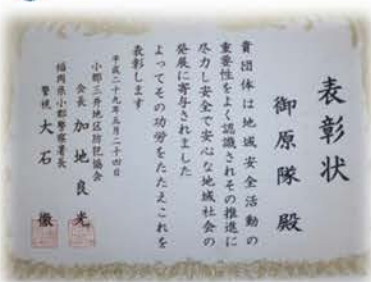 表彰状
御原隊 殿
貴団体は地域安全活動の
重要性をよく認識されその推進に
尽力し安全で安心な地域社会の
発展に寄与されました
よってその功労をたたえこれを
表彰します
平成二十九年五月二十四日
小郡三井地区防犯協会
会長 加地良光
福岡県小郡警察署長
警視 大石 徹